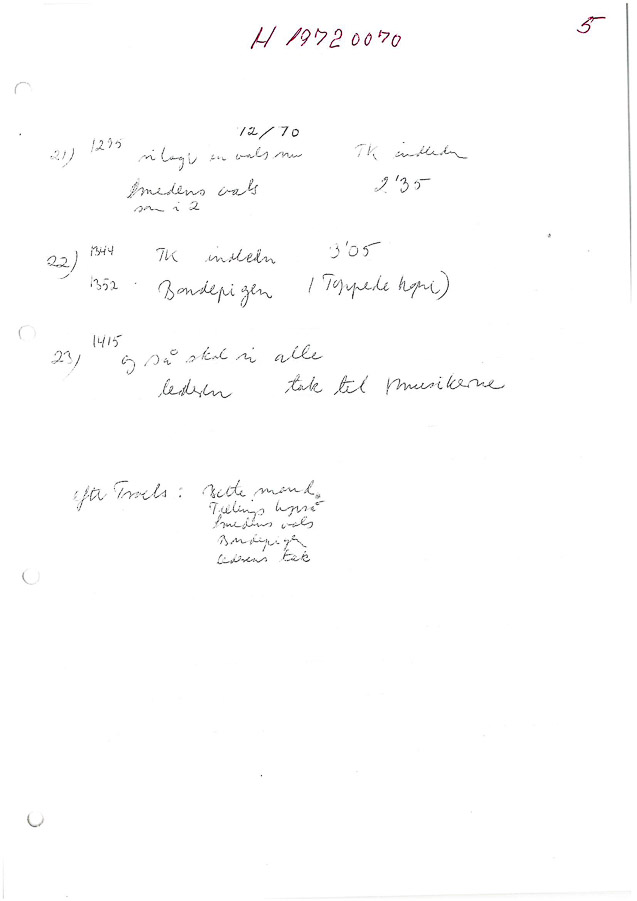 H 19720070
5
12/70
21) 1295 vi lagt en vals nu TK indleder
Smedens vals 2'35
som i 2
22) 1344 TK indledn 3'05
1352 Bondepigen (Toppede høne)
23) 1415 og så skal vi alle
lederen tak til musikerne
efter Troels: Bette mand,
hopså
Smedens vals
Bondepigen
lederens tak